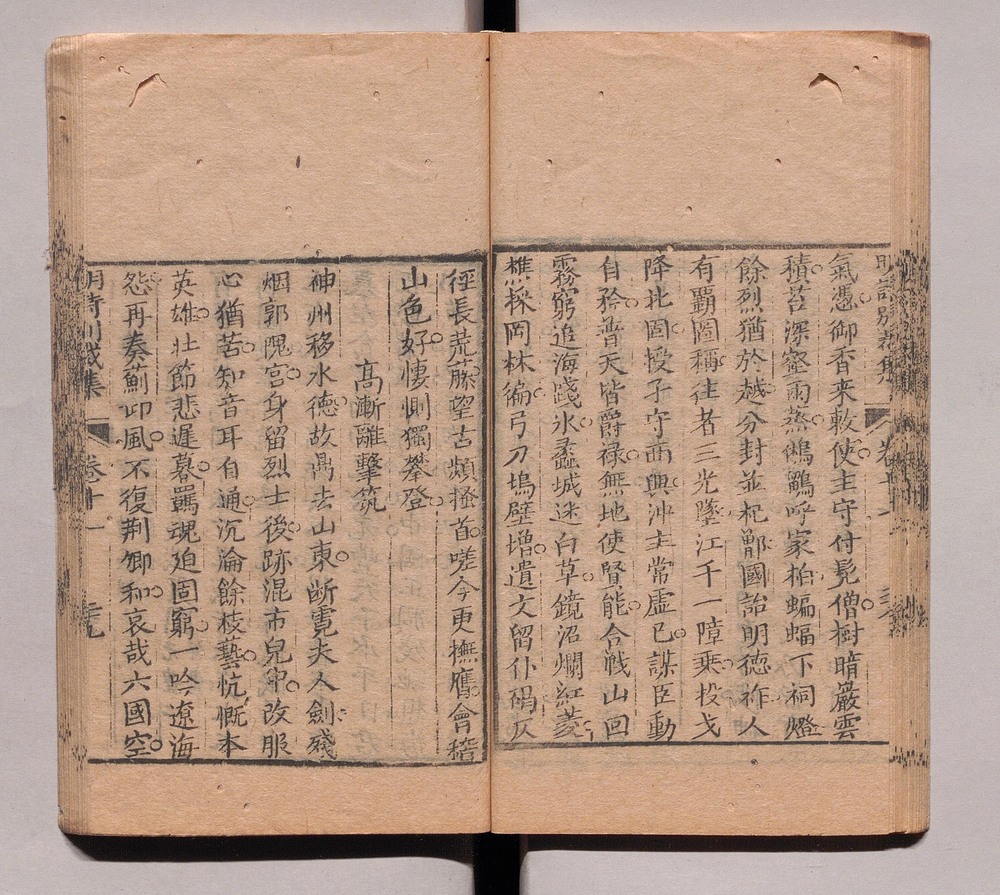 明詩別裁集 卷十一
氣憑御香来敕使主守付髡僧樹暗巖雲
積苔深壑雨蒸鵂鶹呼冢柏蝙蝠下祠燈
餘烈猶於越分封並杞鄫國詒明徳祚人
有覇圖稱往者三光墜江干一障乘投戈
降北固授孑守西興沖主常虛己謀臣動
自矜普天皆爵禄無地使賢能合戦山回
霧窮追海踐氷蠡城迷白草鏡沼爛紅菱
樵採岡林徧弓刀塢壁增遺文留仆碼仄
徑長荒藤望古頻搔首嗟今更撫膺會稽
山色好悽惻獨攀登
高漸離擊筑
神州移水徳故鼎去山東断霓夫人劍殘
烟郭隗宮身留烈士後跡混市兒中改服
心猶苦知音耳自通沉淪餘枝藝忼慨本
英雄壮節悲遲暮羈魂迫固窮一吟遼海
怨再奏薊邱風不復荆卿和哀哉六國空
明詩別裁集 卷十一